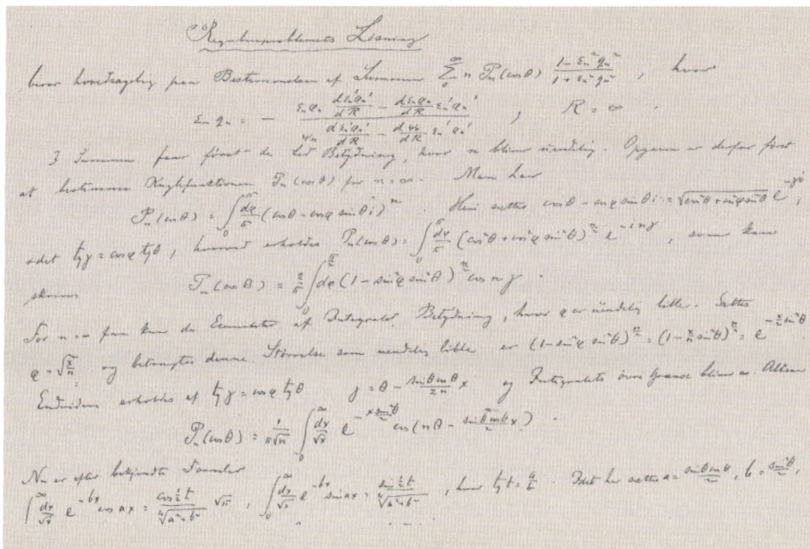 Regnbueproblemets Løsning
beror hovedsagelig paa Bestemmelsen af Summen $\sum_0^\infty n P_n(\cos\theta) \frac{1-\varepsilon_n^2 q_n^2}{1+\varepsilon_n^2 q_n^2}$, hvor
$\varepsilon_n q_n = -\frac{\varepsilon_n q_n \frac{d\varepsilon_n' q_n'}{dR} - \frac{d\varepsilon_n q_n}{dR} \varepsilon_n' q_n'}{\psi_n \frac{d\varepsilon_n' q_n'}{dR} - \frac{d\psi_n}{dR} \varepsilon_n' q_n'}$, $R = \infty$.
I Summen faar først de Led Betydning, hvor n bliver uendelig. Opgaven er derfor først
at bestemme Kuglefunktionen $P_n(\cos\theta)$ for $n = \infty$. Man har
$P_n(\cos\theta) = \int_0^\pi \frac{d\varphi}{\pi} (\cos\theta - \cos\varphi \sin\theta i)^n$. Heri sættes $\cos\theta - \cos\varphi \sin\theta i = \sqrt{\cos^2\theta + \cos^2\varphi \sin^2\theta}\, e^{-\gamma i}$,
idet $tg\gamma = \cos\varphi\, tg\theta$, hvorved erholdes $P_n(\cos\theta) = \int_0^\pi \frac{d\varphi}{\pi} (\cos^2\theta + \cos^2\varphi \sin^2\theta)^{\frac{n}{2}} e^{-in\gamma}$, som kan
skrives $P_n(\cos\theta) = \frac{2}{\pi} \int_0^{\frac{\pi}{2}} d\varphi (1 - \sin^2\varphi \sin^2\theta)^{\frac{n}{2}} \cos n\gamma$.
For $n = \infty$ faar kun de Elementer af Integralet Betydning, hvor $\varphi$ er uendelig lille. Sættes
$\varphi = \sqrt{\frac{x}{n}}$ og betragtes denne Størrelse som uendelig lille er $(1 - \sin^2\varphi \sin^2\theta)^{\frac{n}{2}} = (1 - \frac{x}{n} \sin^2\theta)^{\frac{n}{2}} = e^{-\frac{x}{2} \sin^2\theta}$
Endvidere erholdes af $tg\gamma = \cos\varphi\, tg\theta$ $\gamma = \theta - \frac{\sin\theta\cos\theta}{2n} x$ og Integralets øvre Grænse bliver $\infty$. Altsaa
$P_n(\cos\theta) = \frac{1}{\pi\sqrt{n}} \int_0^\infty \frac{dx}{\sqrt{x}} e^{-\frac{x \sin^2\theta}{2}} \cos(n\theta - \frac{\sin\theta\cos\theta}{2} x)$.
Nu er efter bekjendte Formler
$\int_0^\infty \frac{dx}{\sqrt{x}} e^{-bx} \cos ax = \frac{\cos\frac{1}{2}t}{\sqrt[4]{a^2+b^2}} \sqrt{\pi}$, $\int_0^\infty \frac{dx}{\sqrt{x}} e^{-bx} \sin ax = \frac{\sin\frac{1}{2}t}{\sqrt[4]{a^2+b^2}}$, hvor $tgt = \frac{a}{b}$. Idet her sættes $a = \frac{\sin\theta\cos\theta}{2}$, $b = \frac{\sin^2\theta}{2}$,